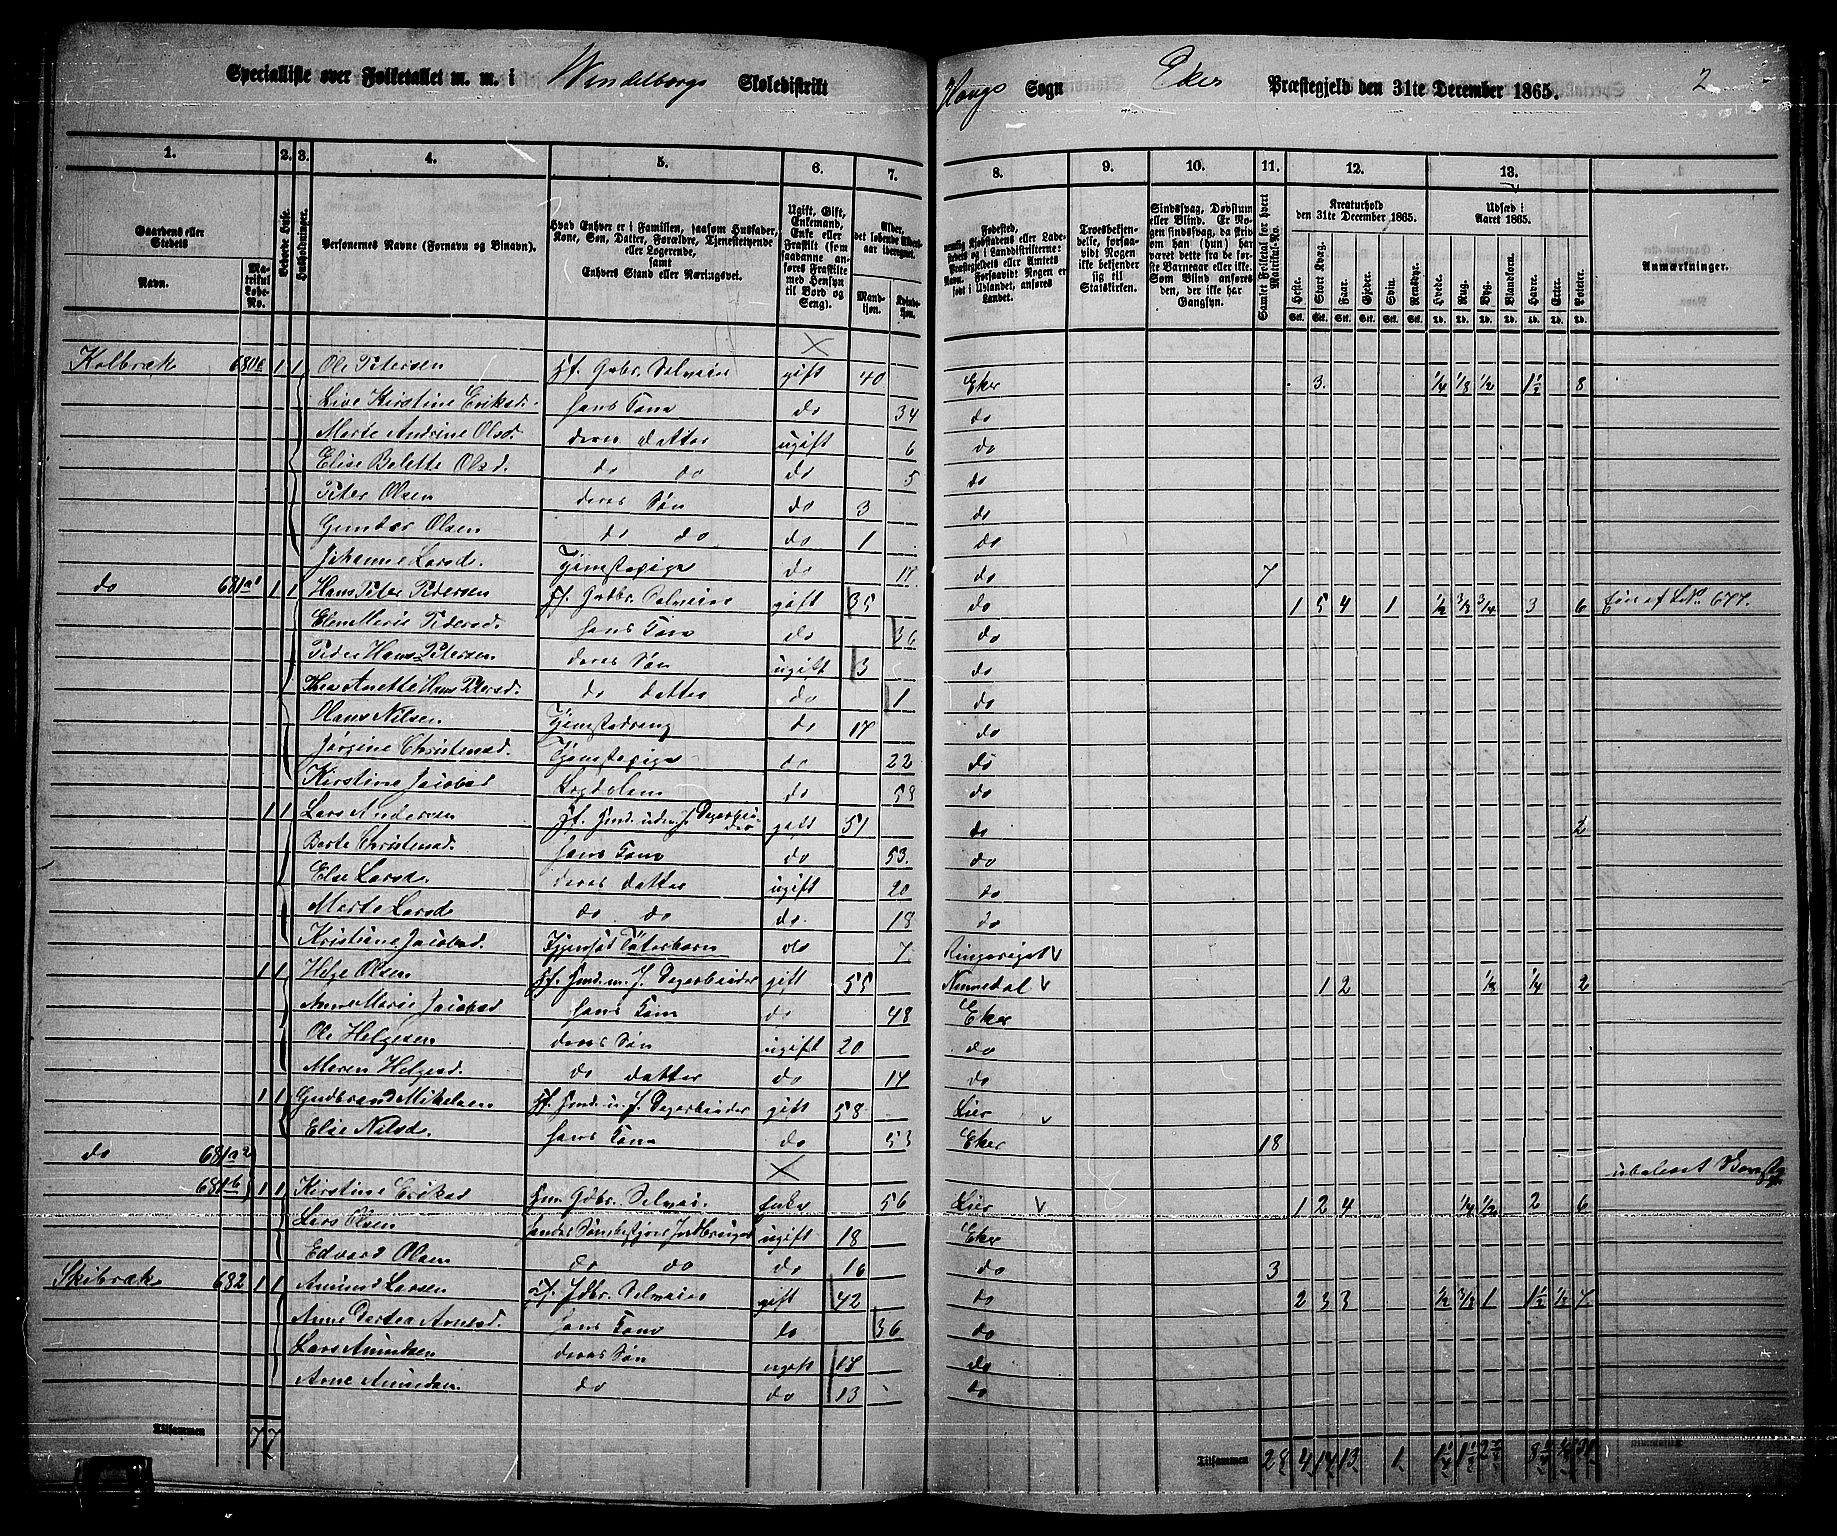 Specialliste over Folketallet m. m. i Windelborgs Skoledistrikt Hougs Sogn Eker Præstegjeld den 31te December 1865. 2
1. 2. 3. 4. 5. 6. 7. 8. 9. 10. 11. 12. 13.
Gaardens eller Stedets
Navn. Matrikul Løbe-No.
Beboede Huse.
Husholdninger.
Personernes Navne (Fornavn og Binavn).
Hvad Enhver er i Familien, saasom Husfader, Kone, Søn, Datter, Forældre, Tjenestetyende eller Logerende, samt Enhvers Stand eller Næringsvei.
Ugift, Gift, Enkemand, Enke eller Fraskilt (som saadanne anføres Fraskilte med Hensyn til Bord og Seng).
Alder, det løbende Aldersaar iberegnet.
Mandkjøn. Kvindekjøn.
Fødested,
Troesbekjendelse, forsaavidt Nogen ikke bekjender sig til Statskirken.
Sindssvag, Døvstum eller Blind. Er Nogen sindssvag, da skrives om han (hun) har været dette fra de første Barneaar eller ikke. Som Blind anføres den, der ikke har Gangsyn.
Samlet Folketal for hvert Matrikul-No.
Kreaturhold den 31te December 1865.
Heste. Stort Kvæg. Faar. Gjeder. Sviin. Rensdyr.
Udsæd i Aaret 1865.
Hvede. Rug. Byg. Blandkorn. Havre. Erter. Poteter.
Anmærkninger.
Kolbræk 680a 1 1 Ole Petersen Hf. Gdbr. Selveier gift 40 Eker 3 1/4 1/8 1/2 1 1/2 8
Live Kirstine Eriksd. hans Kone do 34 do
Marte Andrine Olsd. deres Datter ugift 6 do
Elise Bolette Olsd. do do do 5 do
Peter Olsen deres Søn do 3 do
Gunder Olsen do do do 1 do
Johanne Larsd. Tjenstepige do 17 do 7
do 681a1 1 1 Hans Peter Pedersen Hf. Gdbr. Selveier gift 35 do 1 5 4 1 1/2 3/8 3/4 3 6 Eier af LNo 677.
Elen Marie Pedersd. hans Kone do 36 do
Peder Hans Petersen deres Søn ugift 3 do
Thea Anette Hans Petersd. do Datter do 1 do
Olaus Nilsen Tjenstedreng do 17 do
Jørgine Christensd. Tjenstepige do 22 do
Kirstine Jacobsd Lægdslem do 58 do
1 1 Lars Andersen Hf. Husm. uden J. Dagarbeider gift 51 do 2
Berte Christensd. hans Kone do 53. do
Else Larsd. deres Datter ugift 20 do
Marte Larsd do do do. 18 do
Kristine Jacobsd. do 7 Ringeriget v
1 1 Helge Olsen Hf. Husm. m. J. Dagarbeider gift 55 Numedal v 1 2 1/8 1/4 2
Anne Marie Jacobsd hans Kone do 48 Eker
Ole Helgesen deres Søn ugift 20 do
Maren Helgesd. do Datter do 14 do
1 1 Gudbrand Mikelsen Hf. Husm. u. J. Dagarbeider gift 58 Lier v
Else Nilsd. hans Kone do 53 Eker 18
do 681a2 ubeboet
681b 1 1 Kirstine Eriksd Hm. Gdbr. Selveier. Enke 56 Lier v 1 2 4 1/4 1/2 2 6
Lars Olsen ugift 18 Eker
Edvard Olsen do do do 16 do 3
Skibræk 682 1 1 Amund Larsen Hf. Gdbr. Selveier gift 42 do 2 3 3 1/2 3/8 1 1 1/2 1/2 7
Anne Dortea Arnesd. hans Kone do 36 do
Lars Amundsen deres Søn ugift 17 do
Arne Amundsen. do do 13 do
Tilsammen 7 7
Tilsammen 28 4 14 13 1